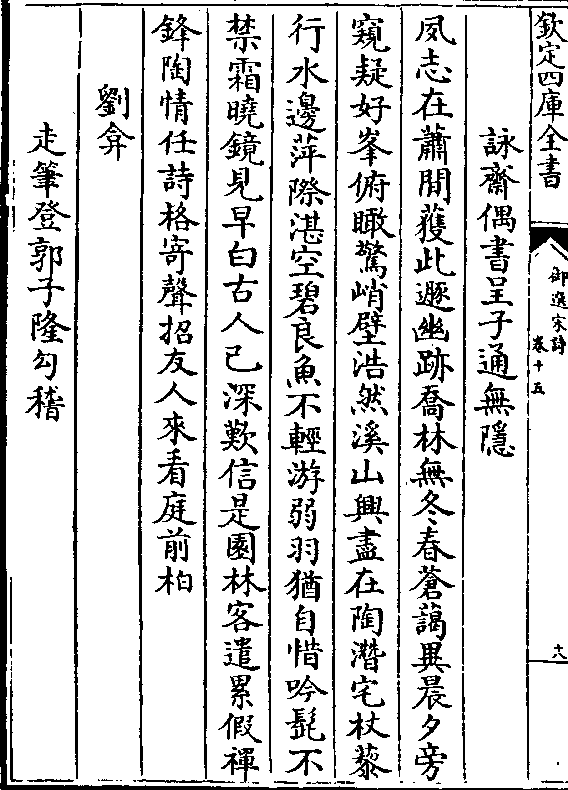 欽定四庫全書
御選宋詩
卷十五
十八
詠齋偶書呈子通無隱
夙志在蕭閒獲此遯幽跡喬林無冬春蒼藹異晨夕旁
窺疑好峯俯瞰驚峭壁浩然溪山興盡在陶潛宅杖藜
行水邊萍際湛空碧良魚不輕游弱羽猶自惜吟髭不
禁霜曉鏡見早白古人已深歎信是園林客遣累假禪
鋒陶情任詩格寄聲招友人來看庭前柏
劉弇
走筆登郭子隆勾稽